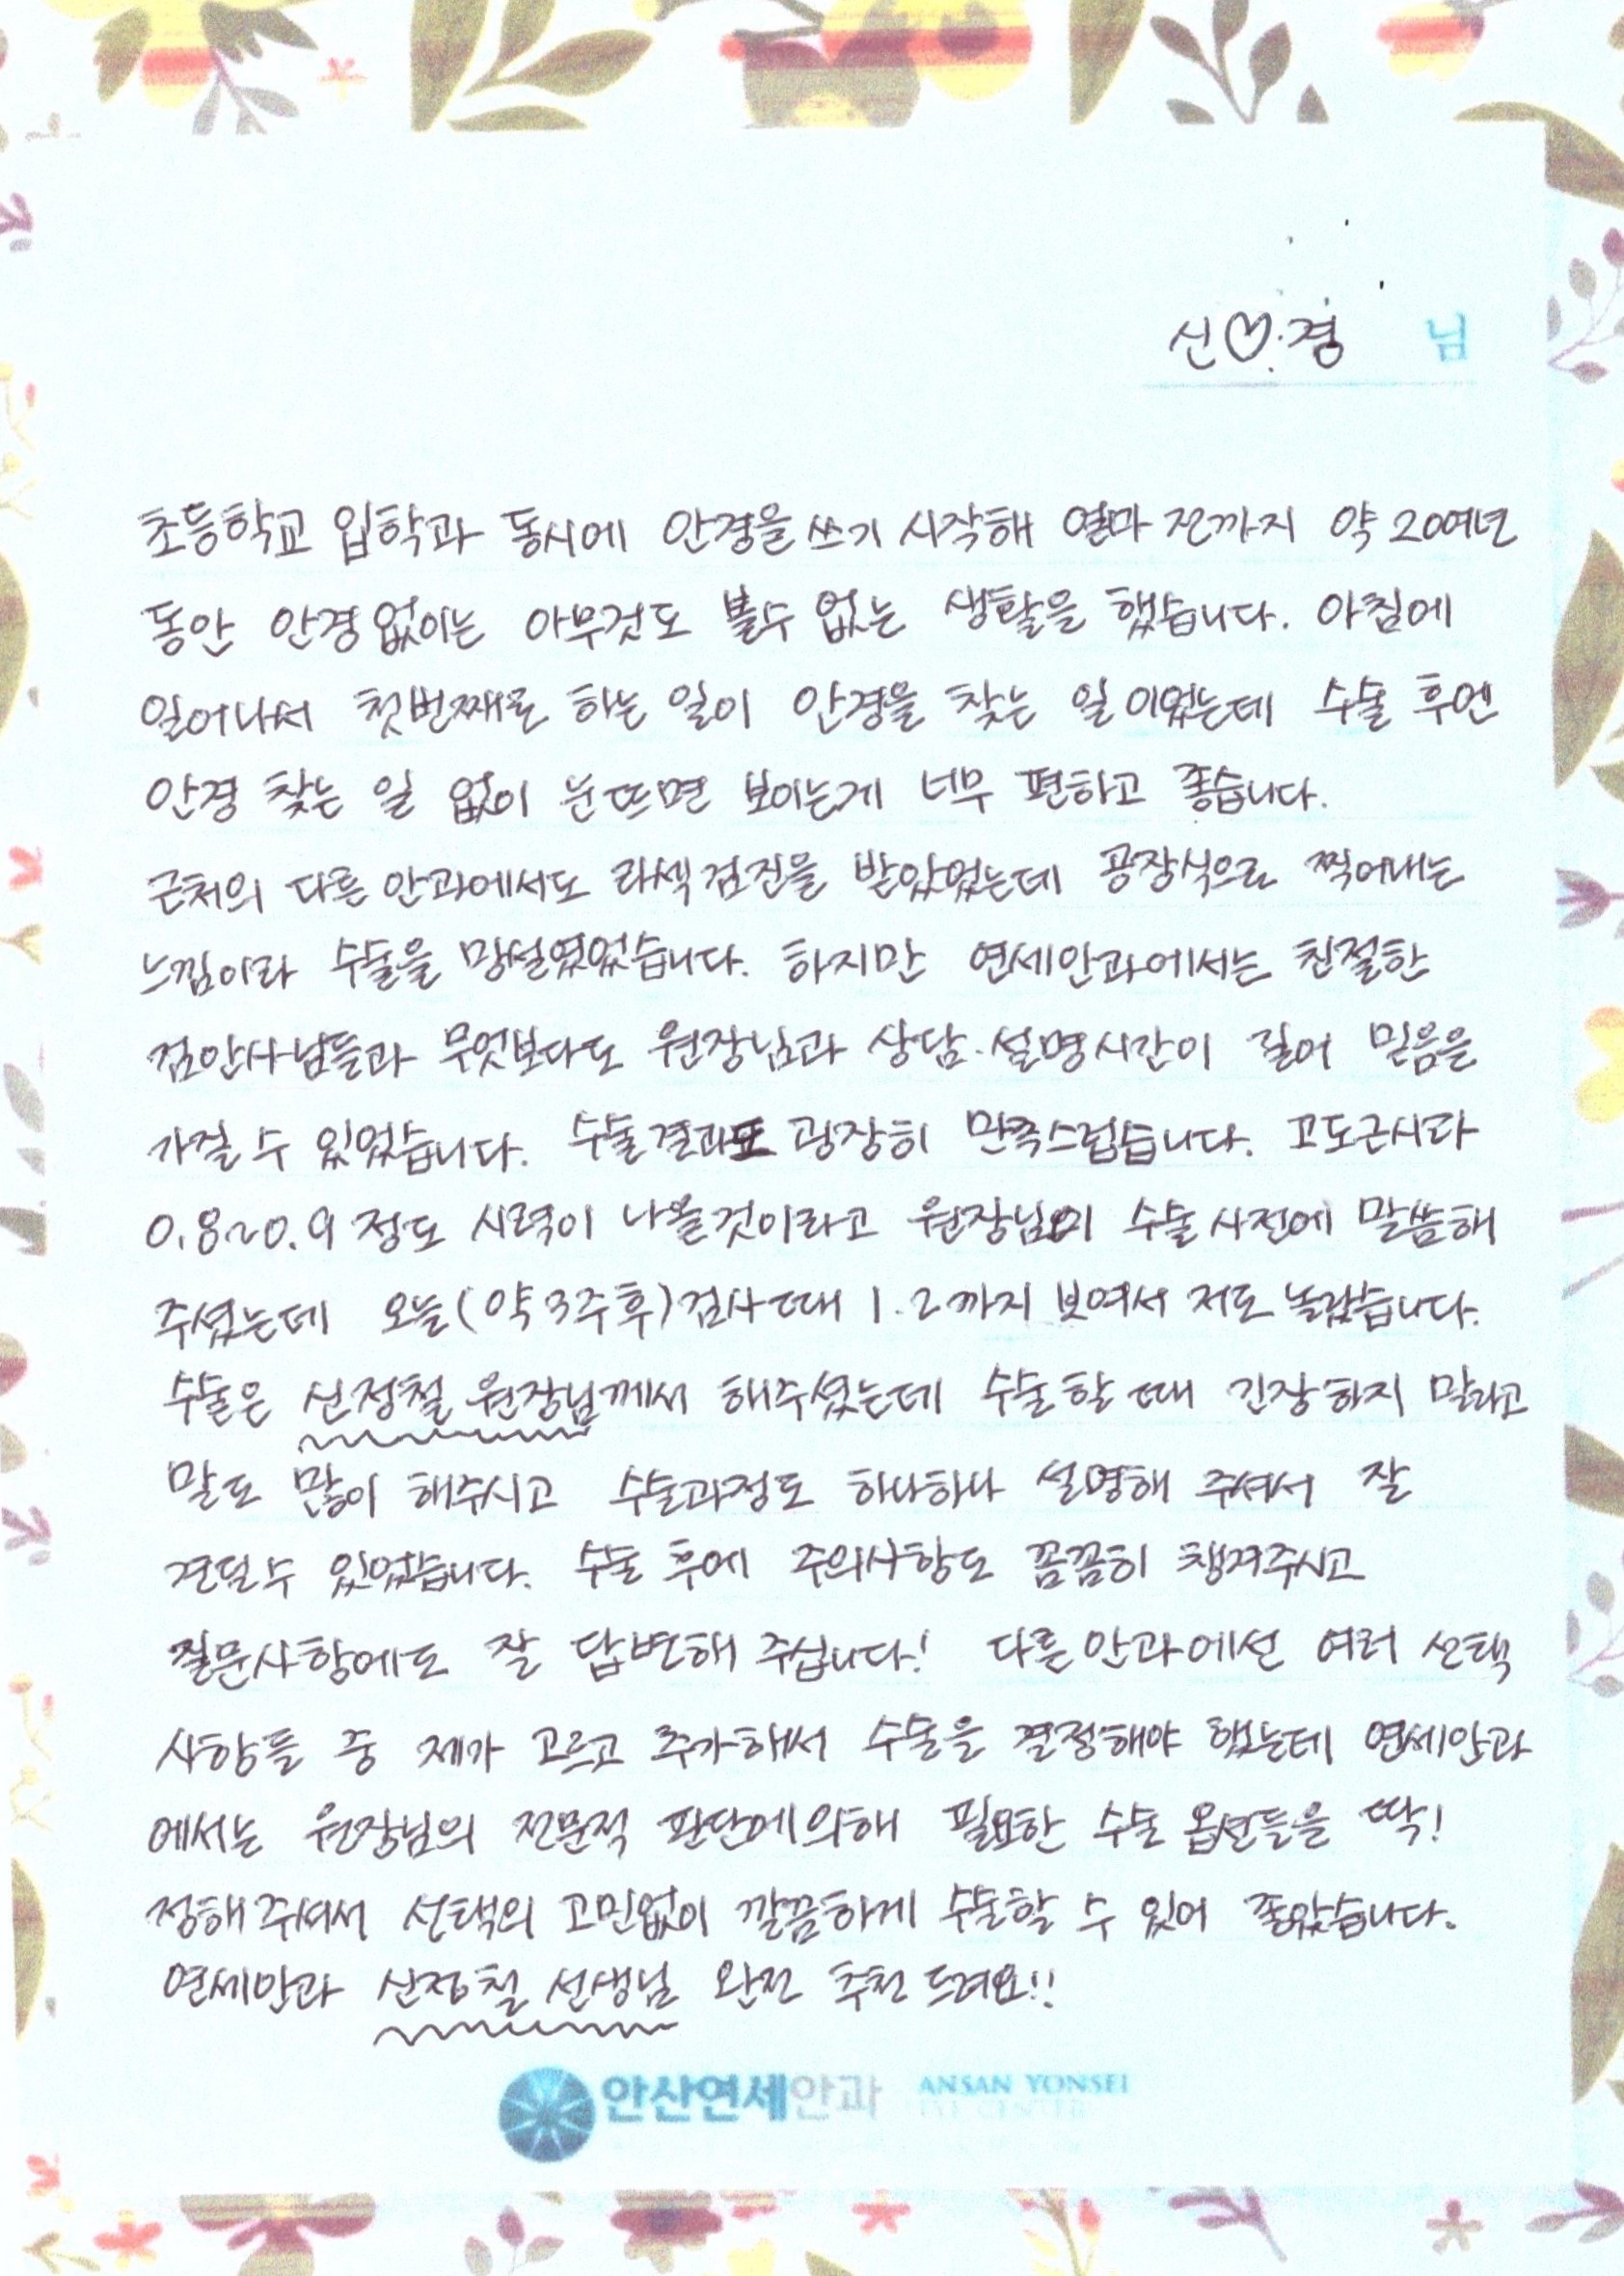 신♡경 님
초등학교 입학과 동시에 안경을 쓰기 시작해 얼마 전까지 약 20여년
동안 안경없이는 아무것도 볼수 없는 생활을 했습니다. 아침에
일어나서 첫번째로 하는 일이 안경을 찾는 일이었는데 수술 후엔
안경 찾는 일 없이 눈뜨면 보이는게 너무 편하고 좋습니다.
근처의 다른 안과에서도 라섹검진을 받았었는데 공장식으로 찍어내는
느낌이라 수술을 망설였었습니다. 하지만 연세안과에서는 친절한
검안사님들과 무엇보다도 원장님과 상담·설명시간이 길어 믿음을
가질 수 있었습니다. 수술결과도 굉장히 만족스럽습니다. 고도근시라
0.8~0.9 정도 시력이 나올것이라고 원장님이 수술 사전에 말씀해
주셨는데 오늘(약3주후)검사때 1.2까지 보여서 저도 놀랐습니다.
수술은 신정철 원장님께서 해주셨는데 수술할 때 긴장하지 말라고
말도 많이 해주시고 수술과정도 하나하나 설명해 주셔서 잘
견딜수 있었습니다. 수술 후에 주의사항도 꼼꼼히 챙겨주시고
질문사항에도 잘 답변해 주십니다! 다른안과에선 여러 선택
사항들 중 제가 고르고 추가해서 수술을 결정해야 했는데 연세안과
에서는 원장님의 전문적 판단에의해 필요한 수술 옵션들을 딱!
정해주셔서 선택의 고민없이 깔끔하게 수술할 수 있어 좋았습니다.
연세안과 신정철 선생님 완전 추천 드려요!!
안산연세안과 ANSAN YONSEI
EYE CENTER